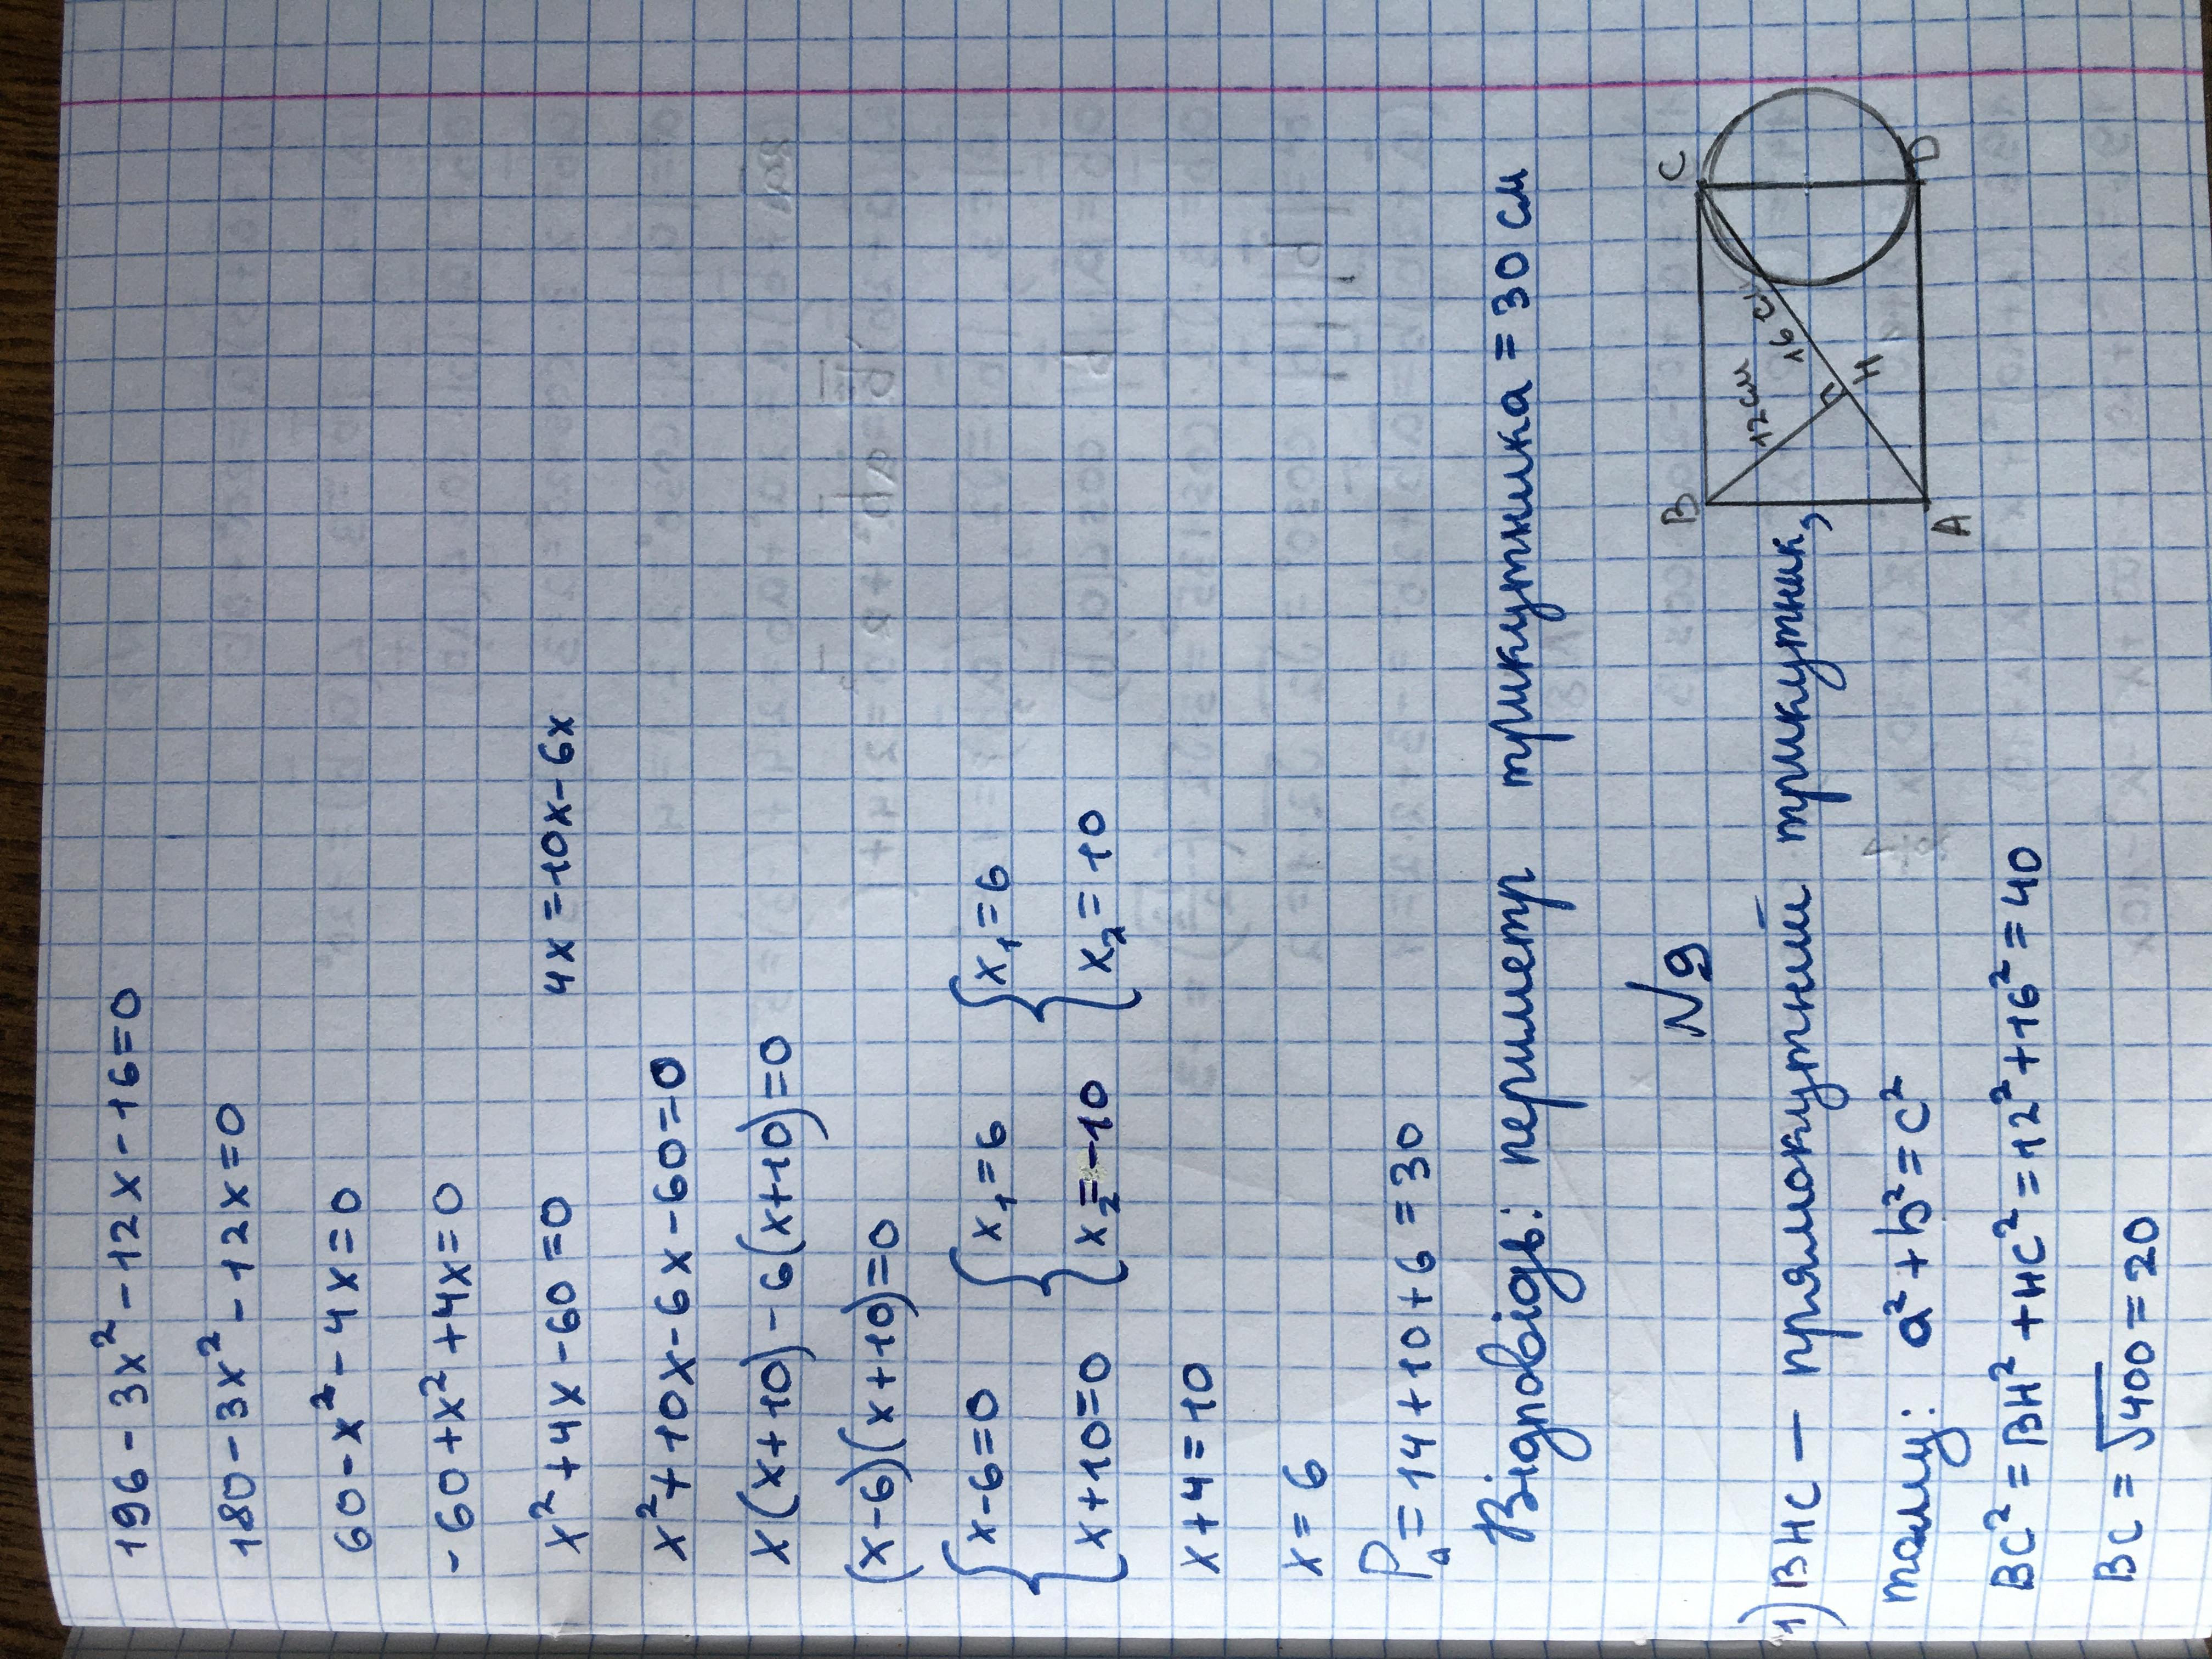 196-3x²-12x-16=0
180-3x²-12x=0
60-x²-4x=0
-60+x²+4x=0
x²+4x-60=0 4x=10x-6x
x²+10x-6x-60=0
x(x+10)-6(x+10)=0
(x-6)(x+10)=0
{x-6=0 {x₁=6 {x₁=6
{x+10=0 {x₂=-10 {x₂=10
x+4=10
x=6
P△=14+10+6=30
Відповідь: периметр трикутника = 30 см
№9
1) BHC – прямокутний трикутник,
тому: a²+b²=c²
BC²=BH²+HC²=12²+16²=40
BC=√400=20
B C
12см 16 см
H
A D